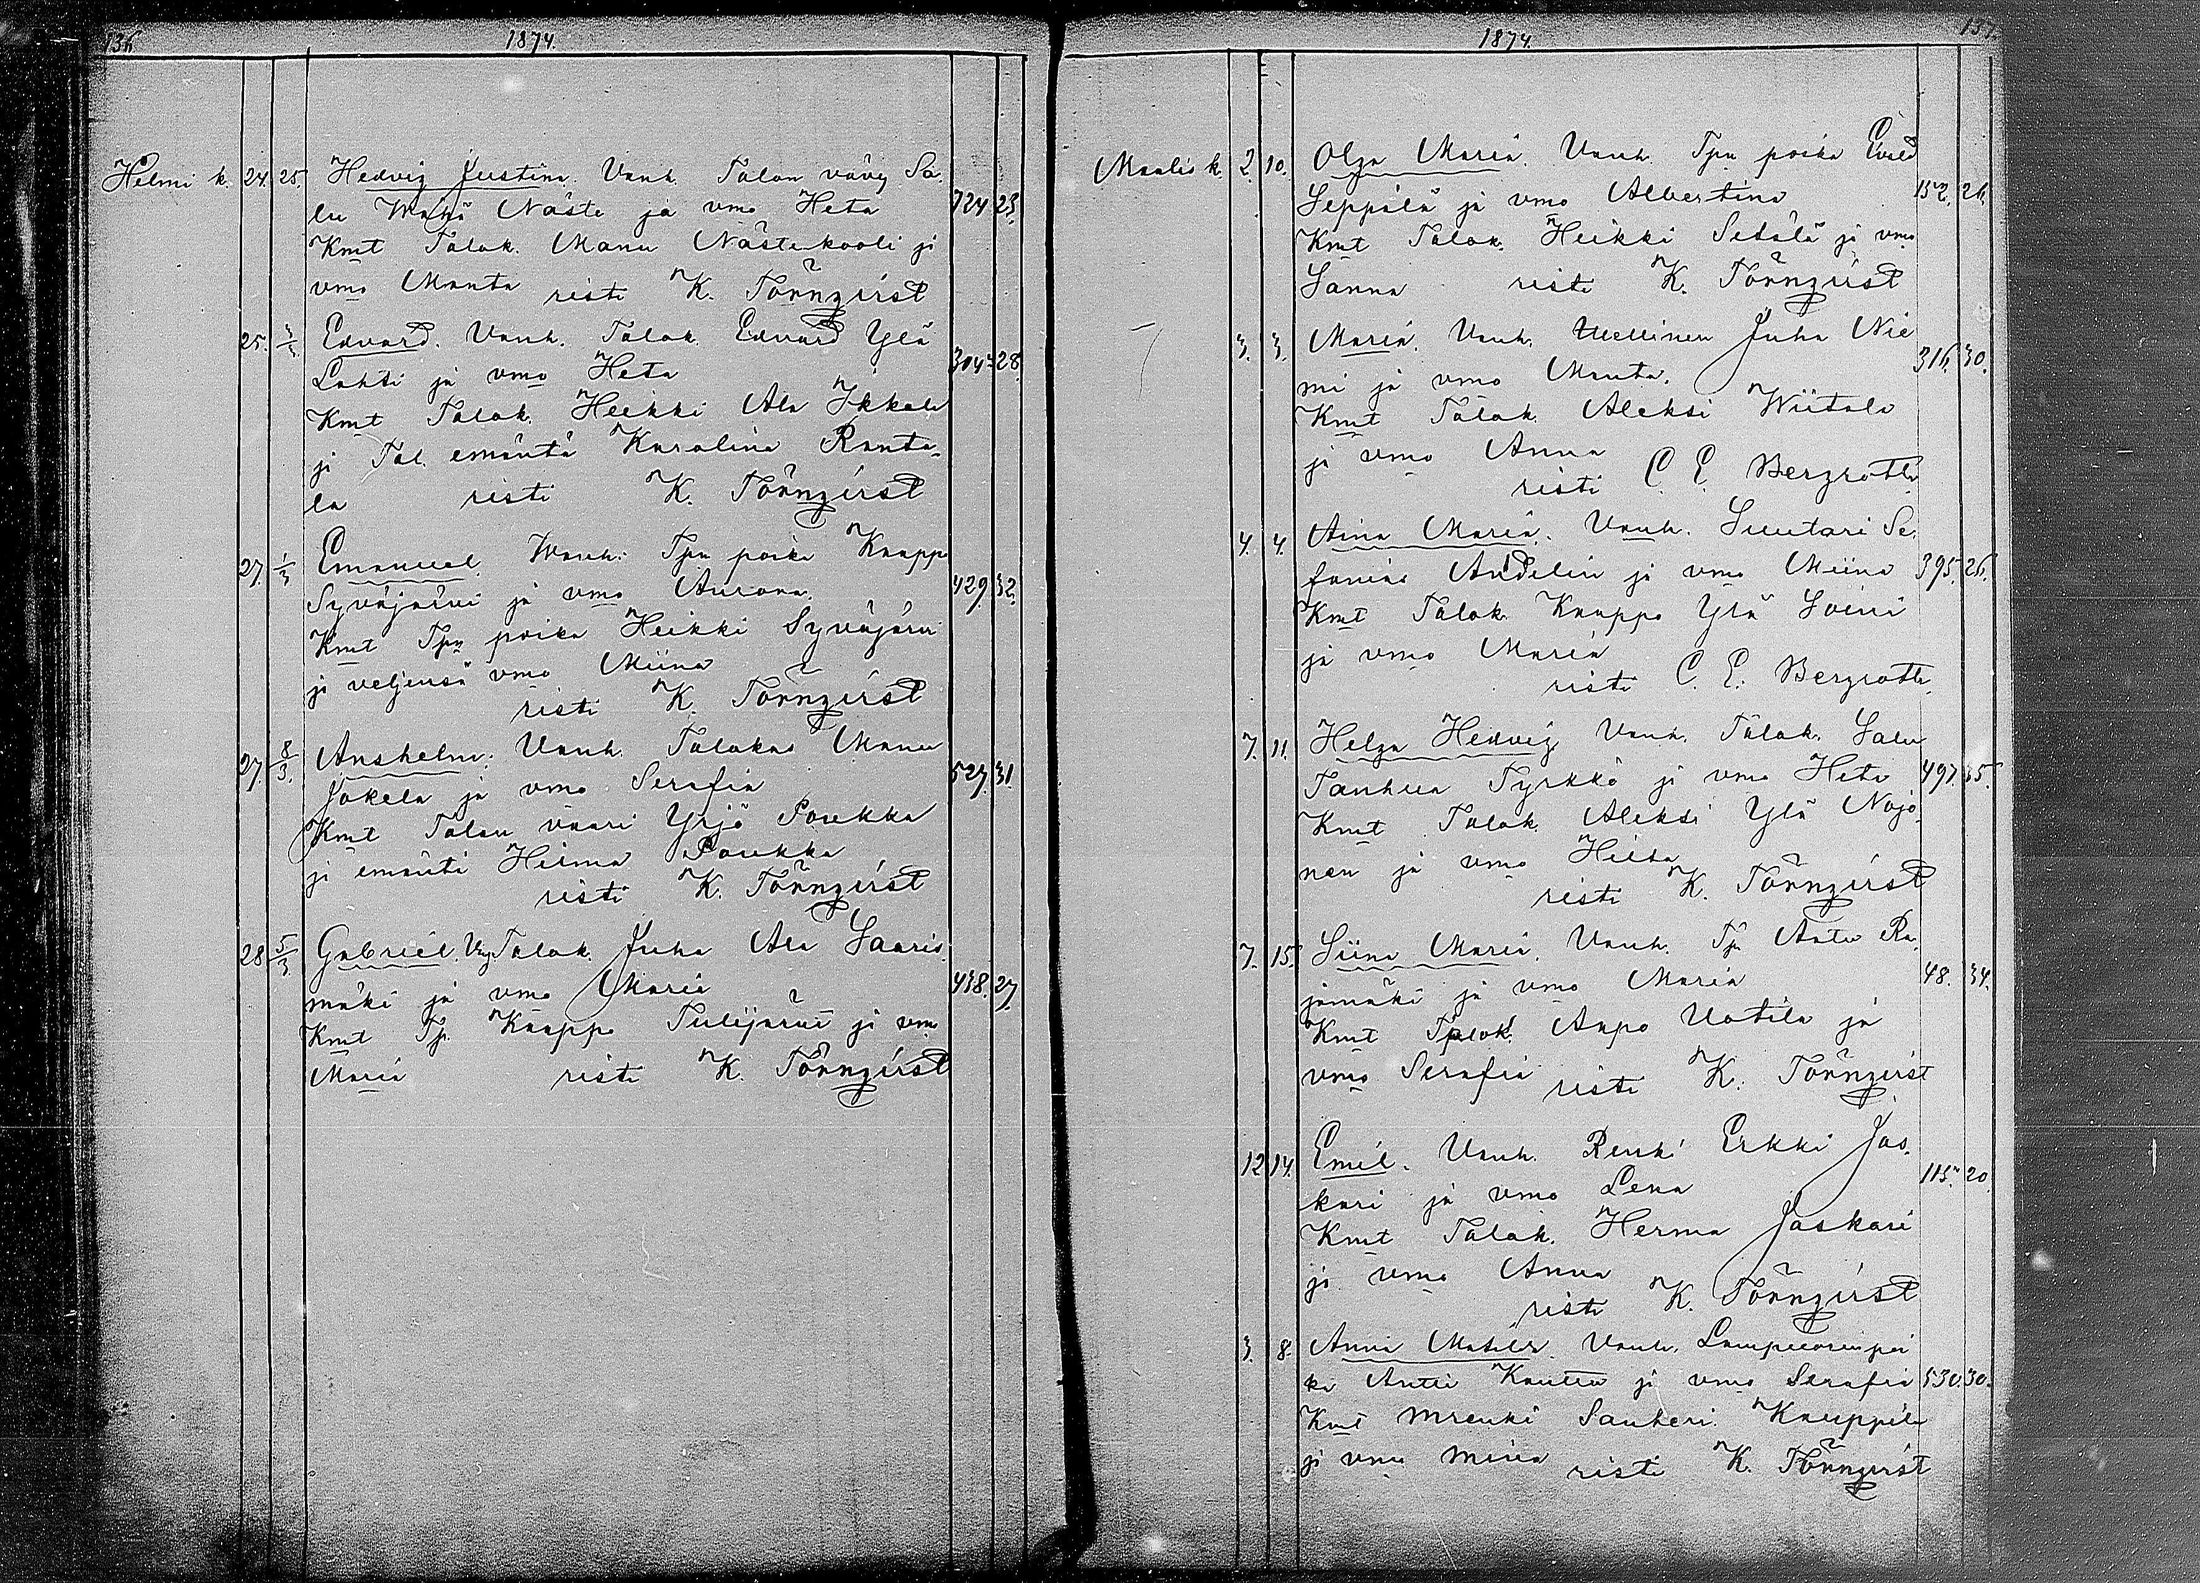 136 1874.
Helmi k. 24. 25. Hedvig Justina. Vanh. Talon vävy Sa-
lu Näste ja vmo Heta 724 23.
Kmt Talok. Manu Nästenkooli ja
vmo Manta risti K. Törnqvist
25. 3/3 Edvard. Vanh. Talok. Edvard Ylä
Lahti ja vmo Heta 304 28.
Kmt Talok. Heikki Ala Ikkala
ja Tal. emäntä Karolina Ranta-
la risti K. Törnqvist
27. 1/3 Emanuel. Vanh. Tpn poika Kaappo
Syväjärvi ja vmo Aurora. 429. 32.
Kmt Tpn poika Heikki Syväjärvi
ja veljensä vmo Miina
risti K. Törnqvist
27. 8/3. Anshelm. Vanh. Talokas Manu
Jokela ja vmo Serafia 527. 31.
Kmt Talon vaari Yrjö Poukka
ja emäntä Heima Poukka
risti K. Törnqvist
28 5/3. Gabriel. Vanh. Talok. Juha Ala Saaris
mäki ja vmo Maria 438. 27.
Kmt Tp. Kaappo Tulijärvi ja vmo
Maria risti K. Törnqvist
1874. 137.
Maalis k. 2. 10. Olga Maria. Vanh. Tpn poika Evald
Seppälä ja vmo Albertina 152. 26.
Kmt Talok. Heikki Setälä ja vmo
Sanna risti K. Törnqvist
3. 3. Maria. Vanh. Itsellinen Juha Nie
mi ja vmo Manta. 316. 30.
Kmt Talok. Aleksi Wiitala
ja vmo Anna
risti C. E. Bergroth
4. 4. Aina Maria. Vanh. Suutari Se-
fanias Andelin ja vmo Miina 395. 26.
Kmt Talok Kaappo Ylä Soini
ja vmo Maria
risti C. E. Bergroth
7. 11. Helga Hedvig. Vanh. Talok. Salu
Tanhua Tyrkkö ja vmo Heta 497. 35.
Kmt Talok. Aleksi Ylä Nojo
nen ja vmo Heeta
risti K. Törnqvist
7. 15. Siina Maria. Vanh. Tp. Antu Ra-
jamäki ja vmo Maria 48. 34.
Kmt Talok. Aapo Uotila ja
vmo Serafia risti K. Törnqvist
12 14. Emil. Vanh. Renki Erkki Jas-
kari ja vmo Lena 115. 20.
Kmt Talok. Herma Jaskari
ja vmo Anna
risti K. Törnqvist
3. 8. Anna Matilda. Vanh. Lampuorin poi
ka Antti Kauttu ja vmo Serafia 530. 30.
Kmt Mrenki Santeri Knuppila
ja vmo Miina risti K. Törnqvist